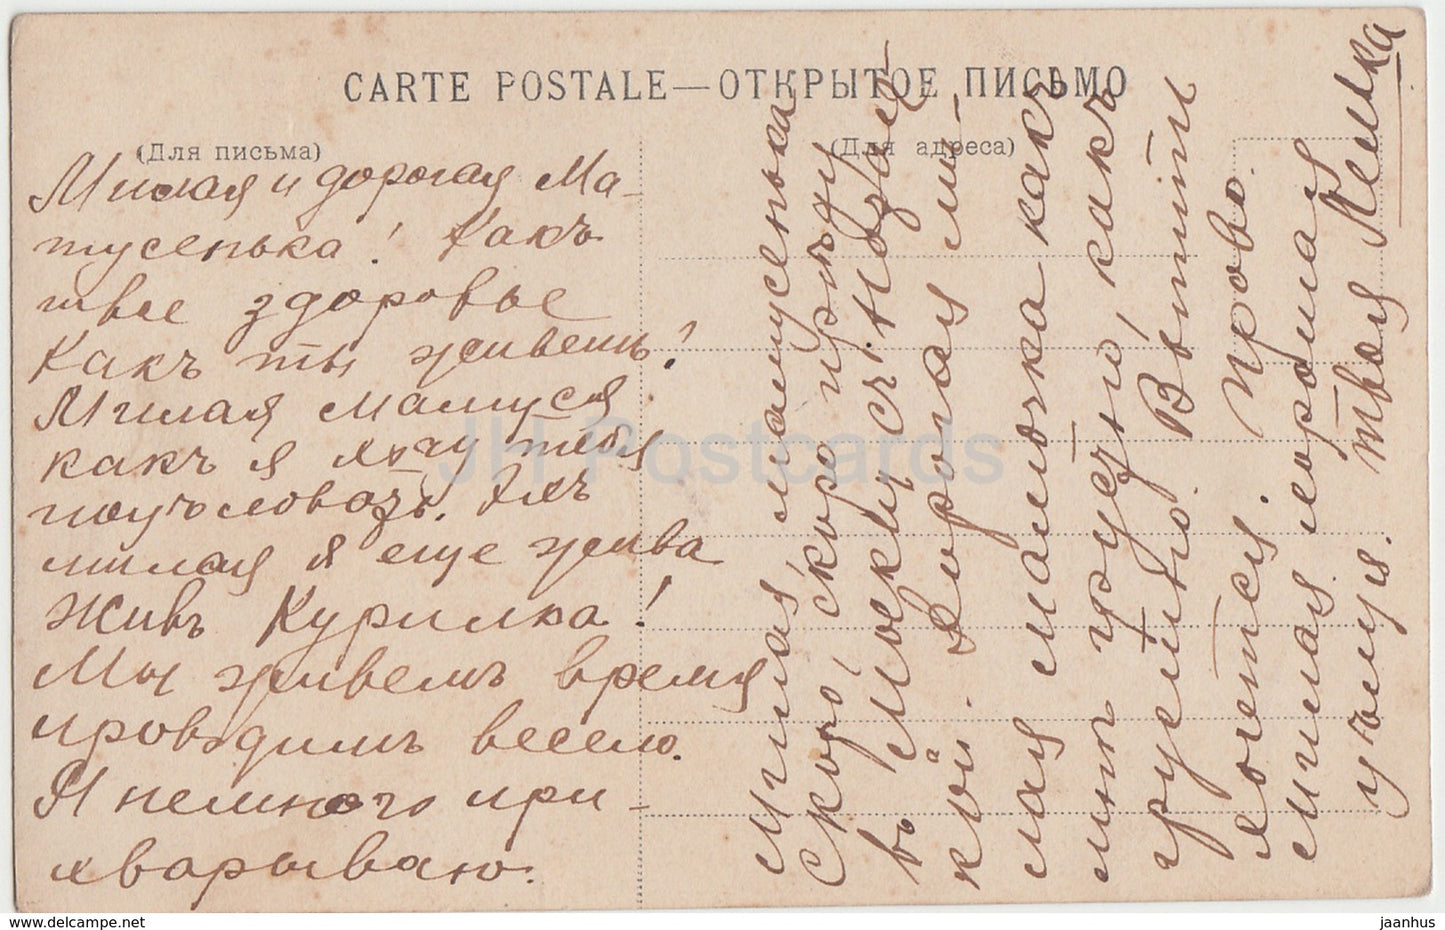 CARTE POSTALE—ОТКРЫТОЕ ПИСЬМО
(Для письма)
(Для адреса)
Милая и дорогая Ма-
тусенька! Какъ
твое здоровье
Какъ ты живешь!
Милая Мамуся
какъ я хочу тебя
поцѣловать.
милая я еще жива
Живъ Курилка!
Мы живемъ время
проводимъ весело.
Я немного при-
хварываю.
Милая матусенька
Скоро, скоро приѣду
въ Москву съ
кой. Дорогая ми-
лая мамочка какъ
мнѣ грустно, какъ
грустно. Выти
хочется.
Милая хорошая
цѣлую. твоя Лелька
JH Postcards
www.delcampe.net
jaanhus